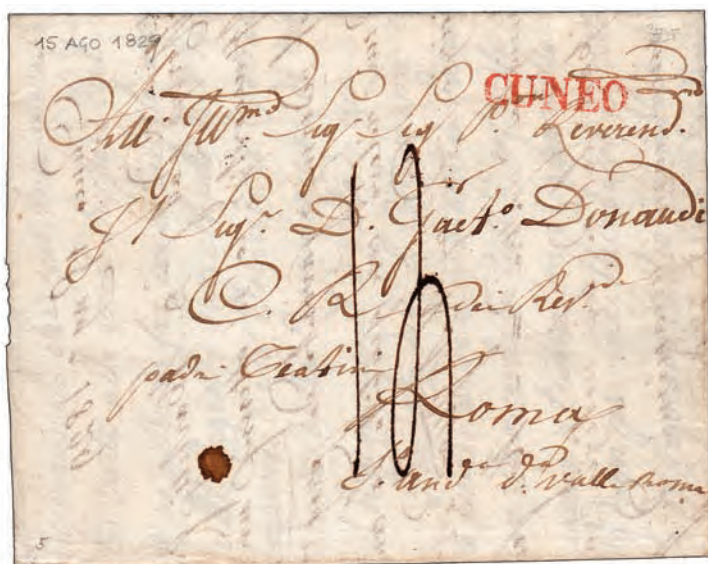 15 AGO 1829
CUNEO
All. Ill.mo Sig. Sig. P.e Reverend.mo
Il Sig.r D. Gaet.o Donaudi
C. R. dei Rev.di
padri Teatini
Roma
S. And.ea d.a Valle Roma
5